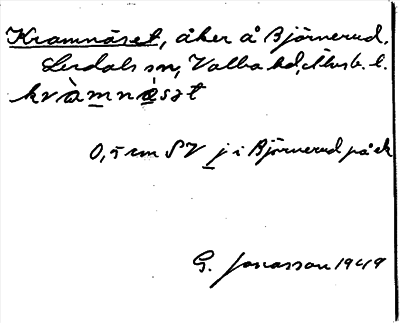 Kramnäset, åker å Björnerud,
Lerdals sn, Valbo hd, Älvsb. l.
kvàmnéset
0,5 cm SV j i Björnerud på ek
G. Jonasson 1949